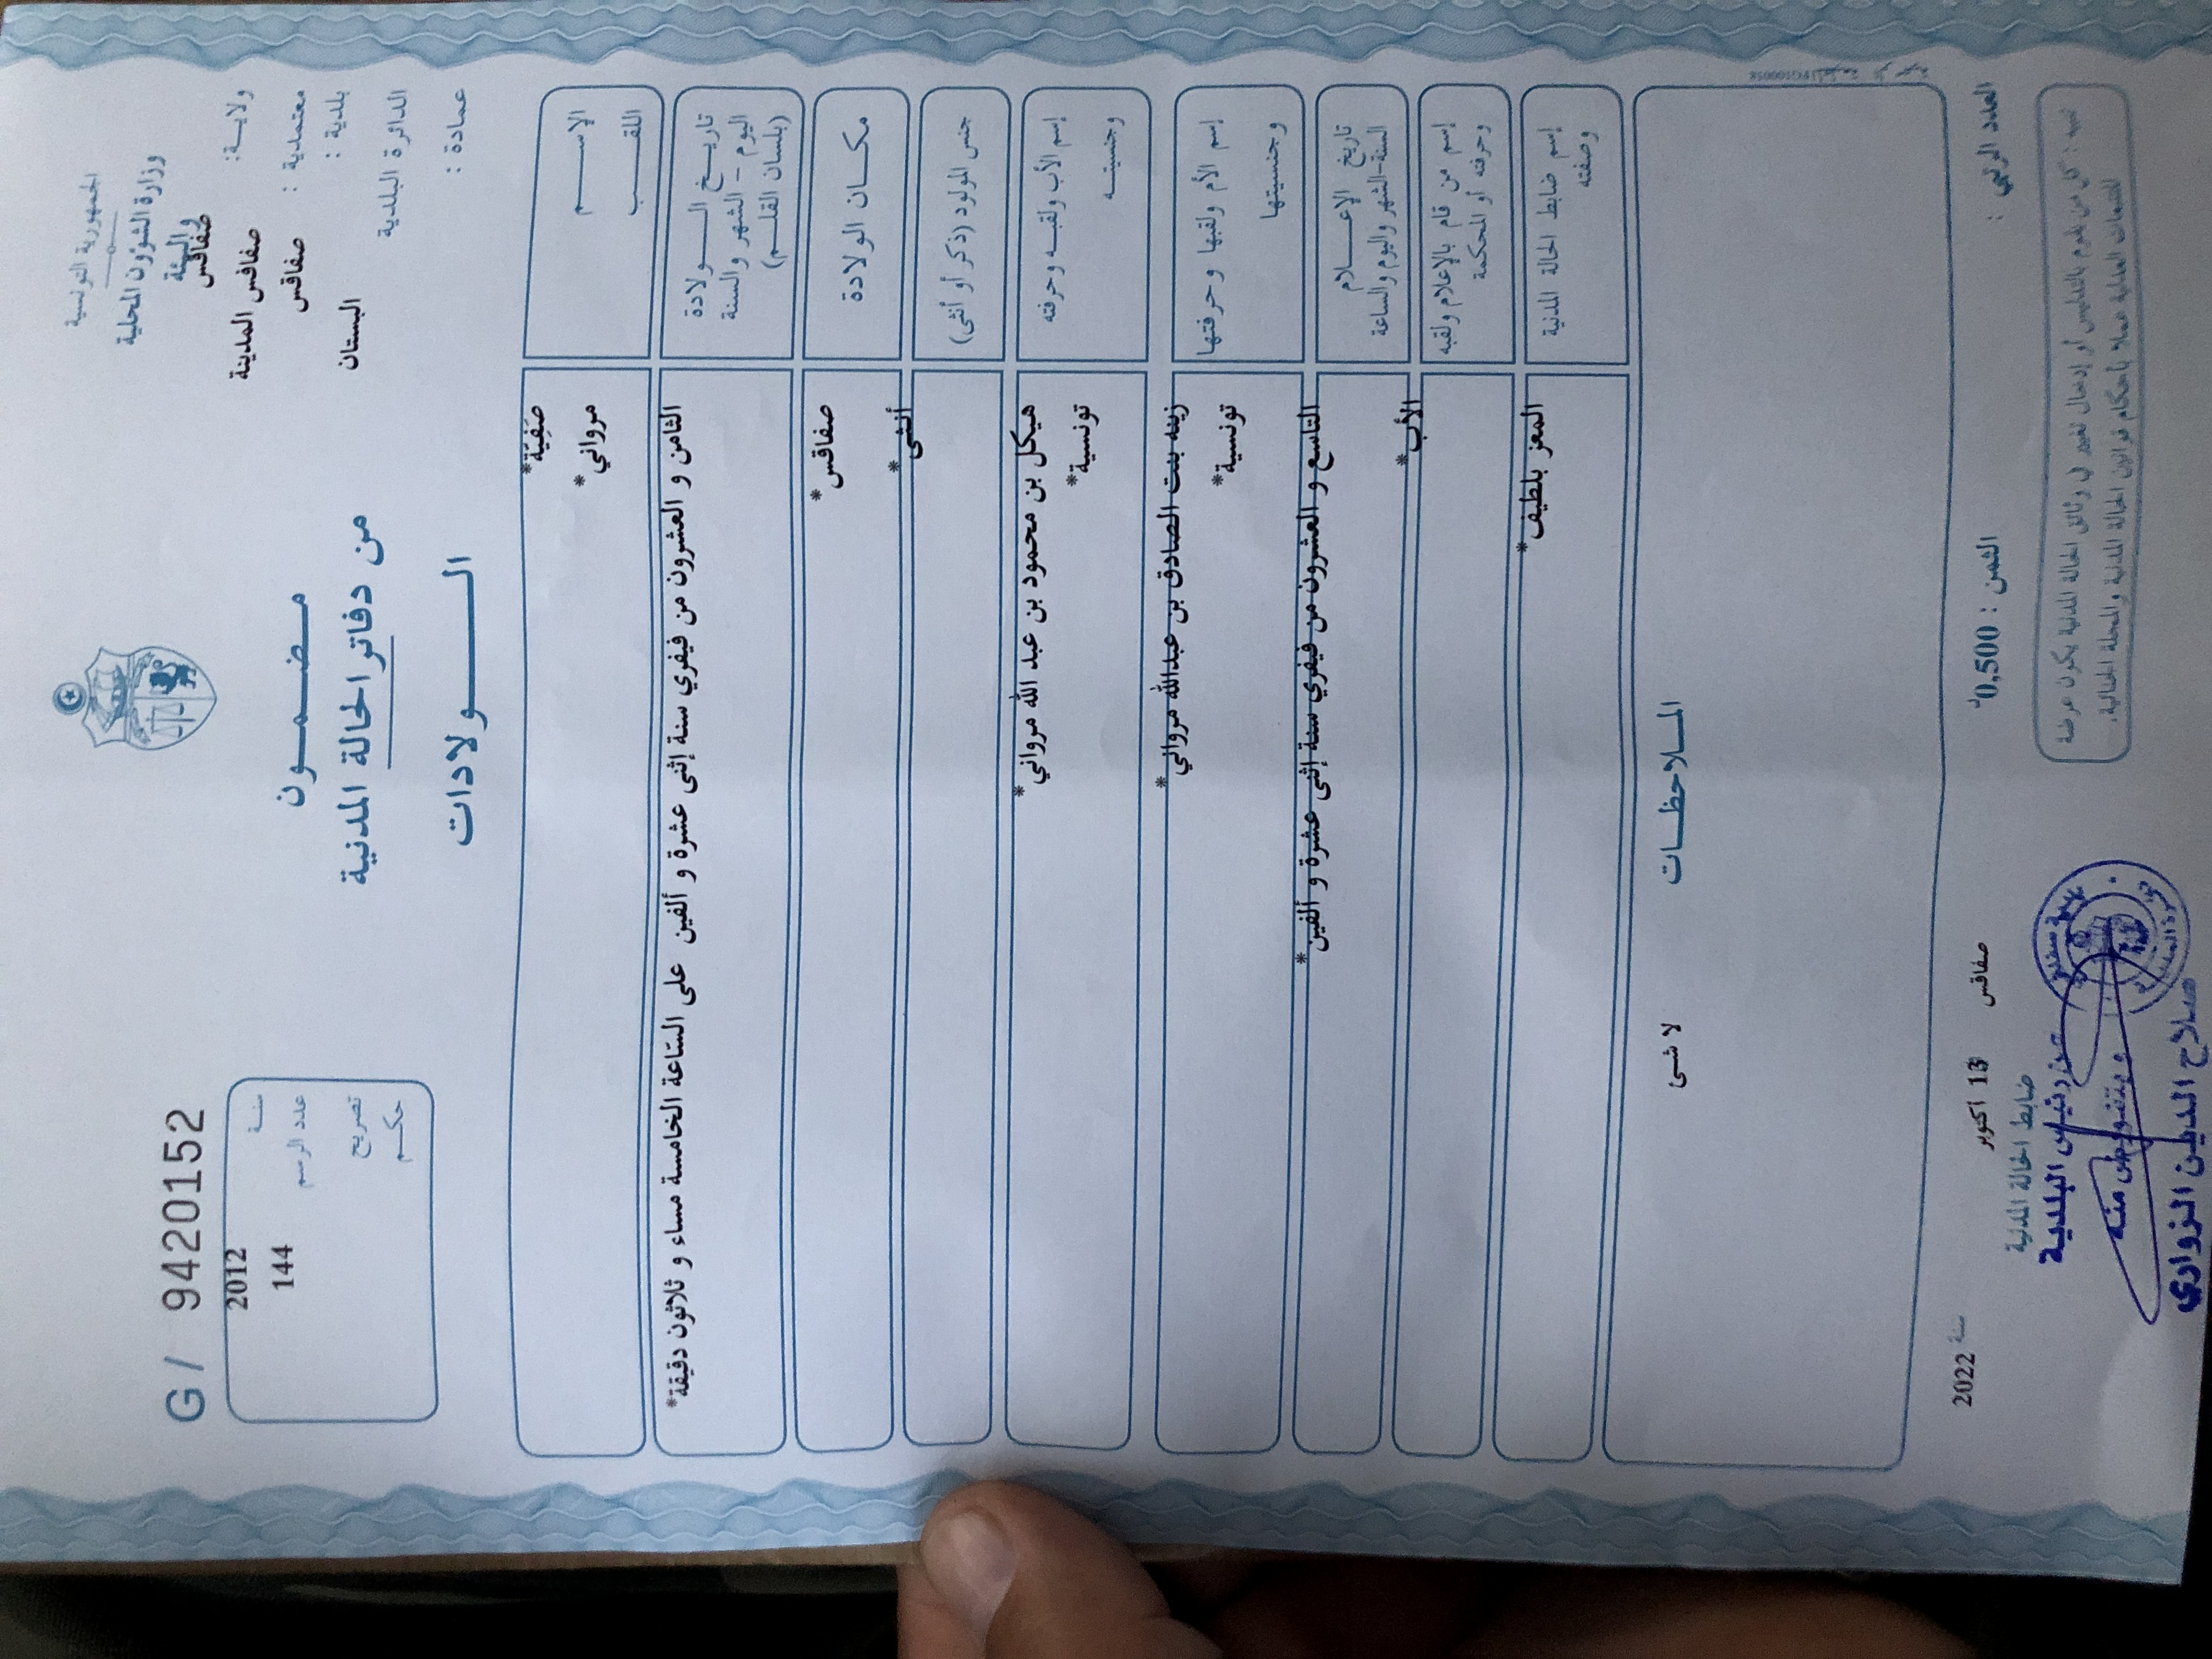 الجمهورية التونسية
وزارة الشؤون المحلية
والبيئة
ولاية: صفاقس
معتمدية : صفاقس المدينة
بلدية : صفاقس
الدائرة البلدية البستان
عمادة :
مضمون
من دفاتر الحالة المدنية
الولادات
G / 9420152
سنة 2012
عدد الرسم 144
تصريح
حكم
الإسم صَفِيّة*
اللقب مرواني*
تاريخ الولادة
اليوم – الشهر والسنة
(بلسان القلم)
الثامن و العشرون من فيفري سنة إثنى عشرة و ألفين على الساعة الخامسة مساء و ثلاثون دقيقة*
مكان الولادة صفاقس*
جنس المولود (ذكر أو أنثى) أنثى*
إسم الأب ولقبه وحرفته هيكل بن محمود بن عبد الله مرواني*
وجنسيته تونسية*
إسم الأم ولقبها وحرفتها زينه بنت الصادق بن عبدالله مرواني*
وجنسيتها تونسية*
تاريخ الإعلام
السنة-الشهر واليوم والساعة
التاسع و العشرون من فيفري سنة إثنى عشرة و ألفين*
إسم من قام بالإعلام ولقبه الأب*
وحرفته أو المحكمة
إسم ضابط الحالة المدنية المعز بلطيف*
وصفته
الملاحظات
لا شئ
العدد الرتبي :
الثمن : 0,500د
صفاقس 13 اكتوبر سنة 2022
ضابط الحالة المدنية
عن رئيس البلدية
وبتفويض منه
صلاح الدين الزواري
تنبيه : كل من يقوم بالتدليس أو إدخال تغيير في وثائق الحالة المدنية يكون عرضة
للتتبعات العدلية عملا بأحكام قوانين الحالة المدنية والمجلة الجنائية.